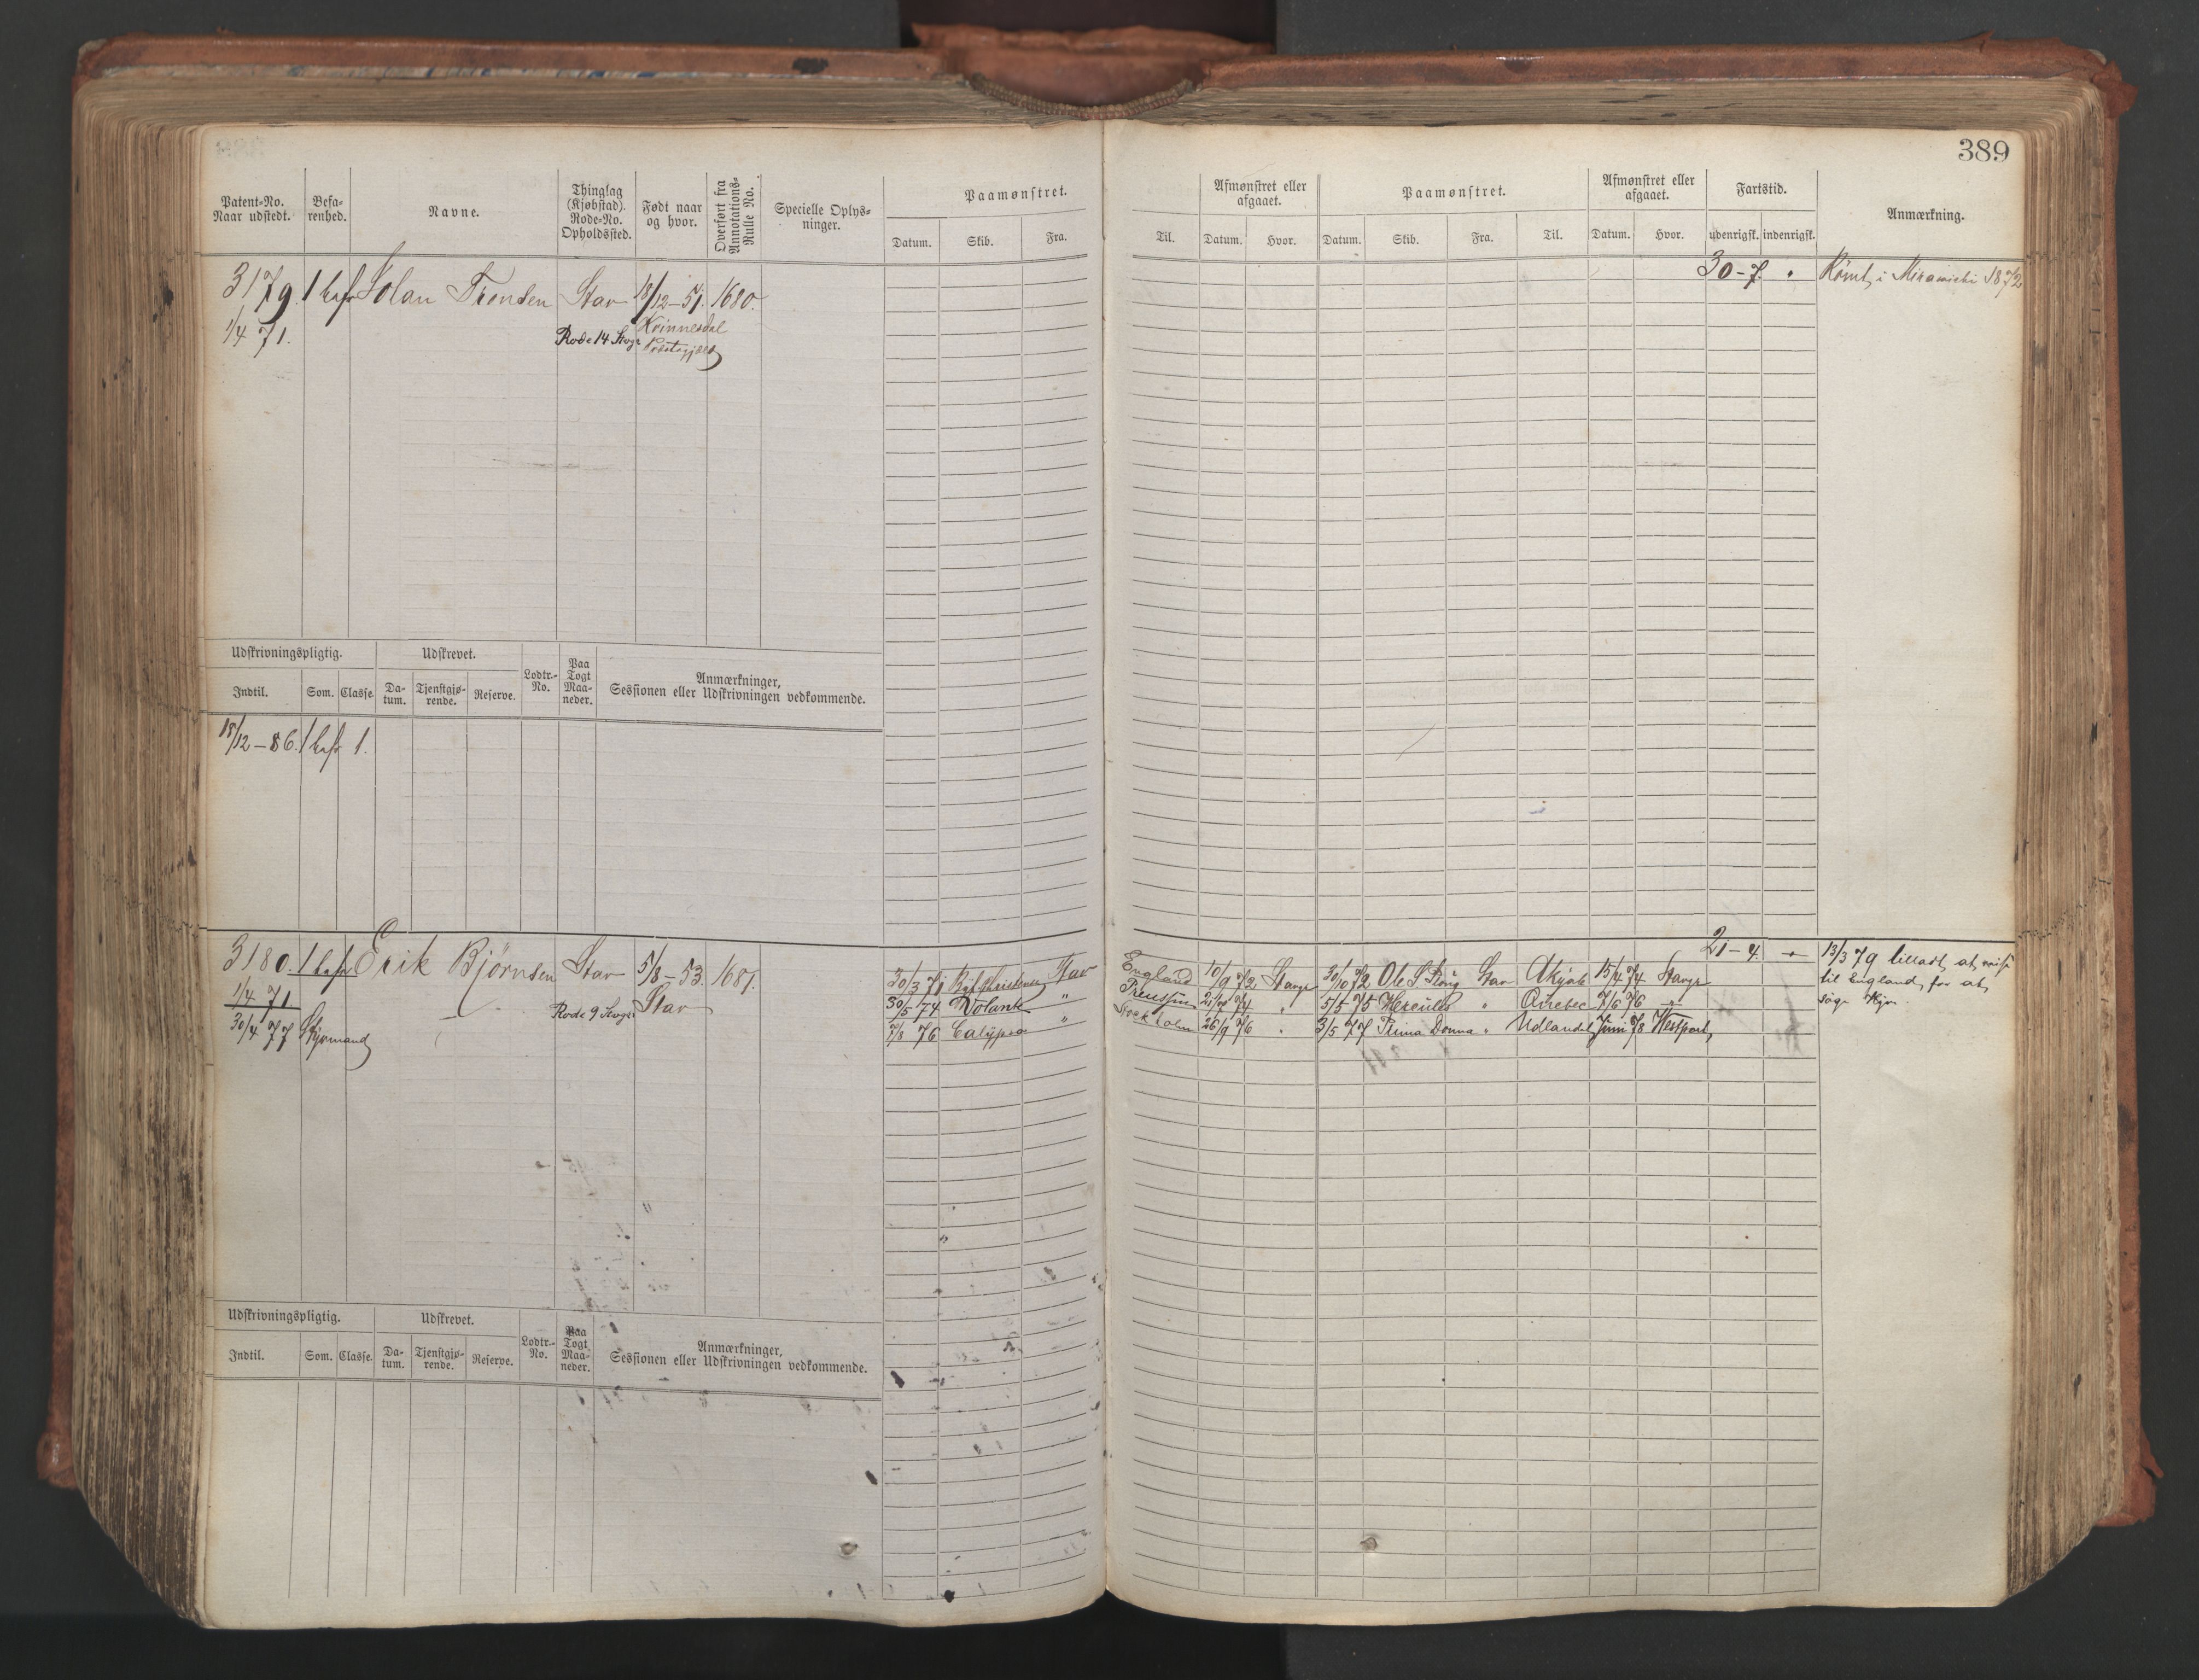 389
Patent-No. Naar udstedt. Befa-renhed. Navne. Thinglag (Kjøbstad). Rode-No. Opholdssted. Født naar og hvor. Overført fra Annotations-Rulle No. Specielle Oplys-ninger. Paamønstret. Datum. Skib. Fra.
Til. Afmønstret eller afgaaet. Datum. Hvor. Paamønstret. Datum. Skib. Fra. Til. Afmønstret eller afgaaet. Datum. Hvor. Fartstid. udenrigsk. indenrigsk. Anmærkning.
3179. 1 bef Trensen Stav 18/12-51. 1680. 30-7. Rømt i Miramichi 1872
1/4 71. Rode 14 Stvgr Kvinnesdal
Udskrivningspligtig. Udskrevet. Lodtr.-No. Paa Togt Maa-neder. Anmærkninger, Sessionen eller Udskrivningen vedkommende.
Indtil. Som. Classe. Da-tum. Tjenstgjø-rende. Reserve.
18/12-86. 1 bef 1.
3180. 1 bef Erik Björnsen Stav 5/8-53. 1681. 30/3 71 Stav England 10/9 72 Stavgr 30/10 72 Stav Akyab 15/4 74 Stavgr 21-4 13/3 79 tilladt at reise
1/4 71 Rode 9 Stvgr Stav 30/5 74 Volante " Preussen " 5/5 75 Hercules " Quebec 7/6 76 " til England for at
30/4 77 Styrmand 7/8 76 Calypso " Stockholm 26/9 76 " 3/5 77 Prima Donna " Udlandet Juni 78 Westport,
Udskrivningspligtig. Udskrevet. Lodtr.-No. Paa Togt Maa-neder. Anmærkninger, Sessionen eller Udskrivningen vedkommende.
Indtil. Som. Classe. Da-tum. Tjenstgjø-rende. Reserve.